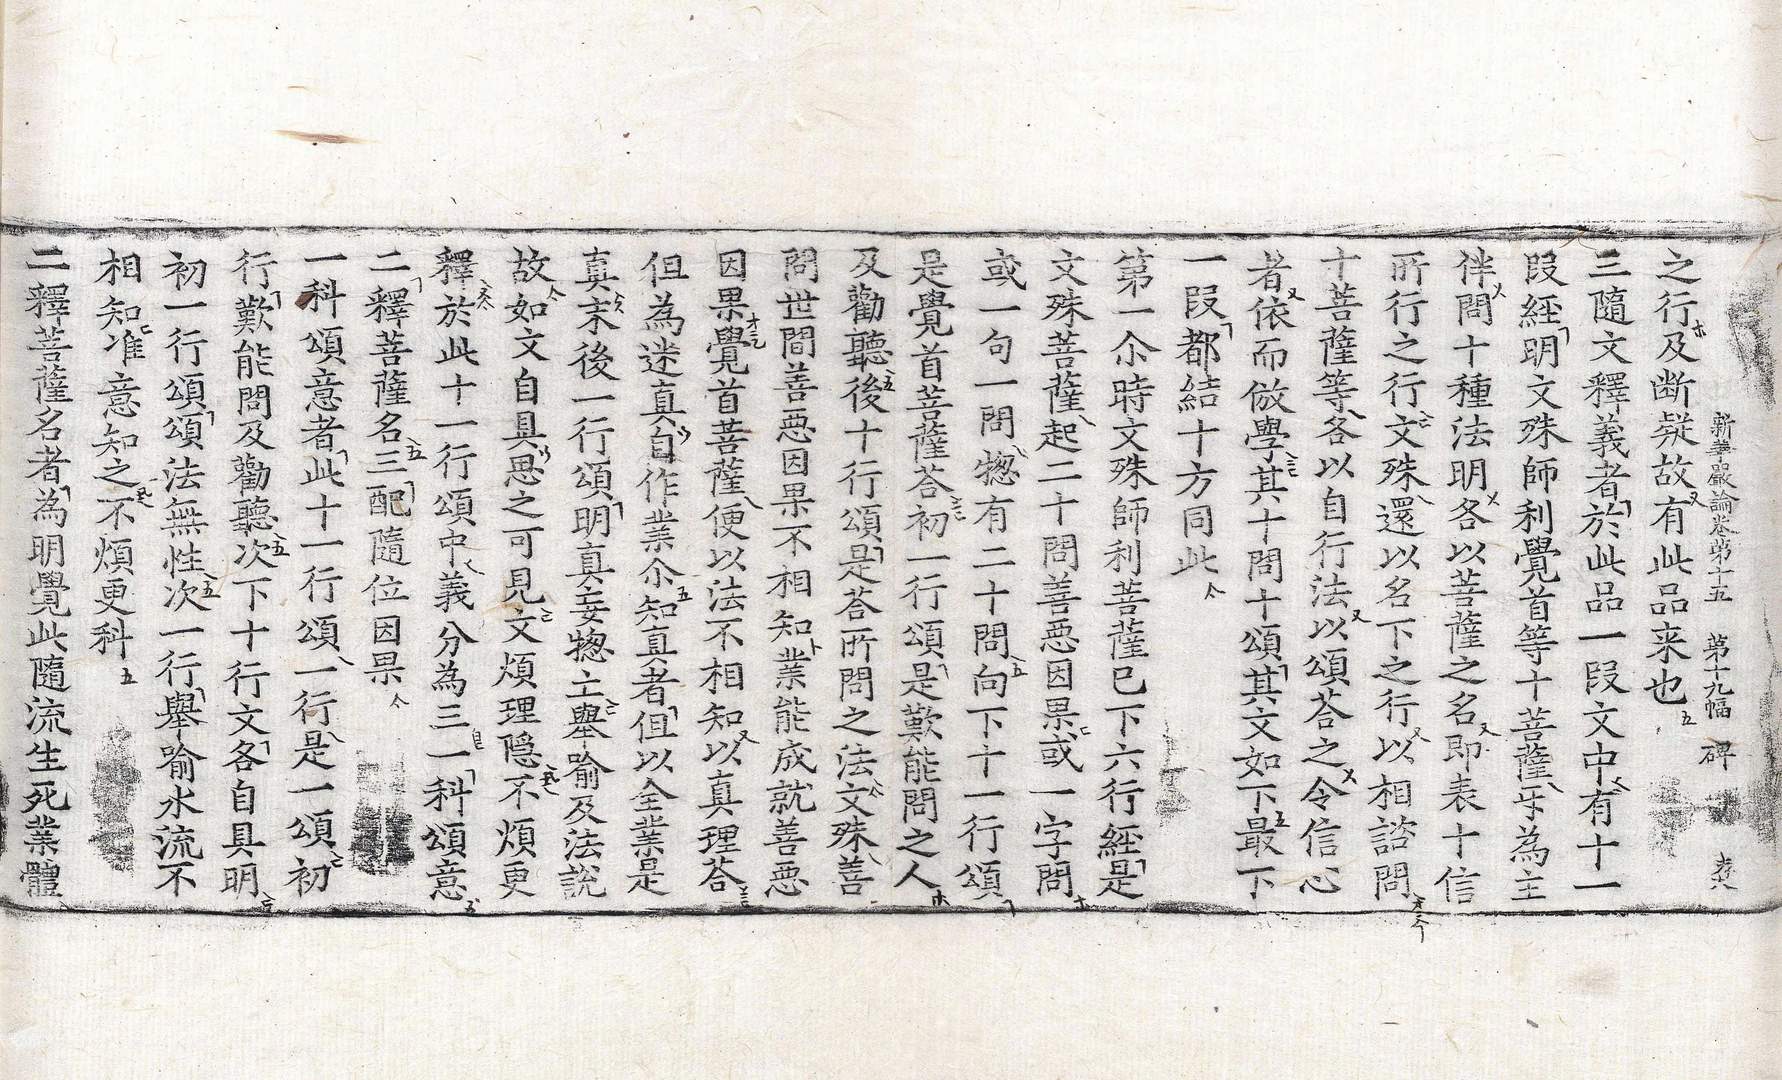 新華嚴論卷第十五　第十九幅　碑
之行及断疑故有此品来也
三隨文釋義者於此品一段文中有十一
段經明文殊師利覺首等十菩薩乎為主
伴問十種法明各以菩薩之名即表十信
所行之行文殊還以名下之行以相諮問
十菩薩等各以自行法以頌荅之令信心
者依而倣學其十問十頌其文如下最下
一段都結十方同此
第一尒時文殊師利菩薩已下六行經是
文殊菩薩起二十問善惡因果或一字問
或一句一問揔有二十問向下十一行頌
是覺首菩薩荅初一行頌是歎能問之人
及勸聽後十行頌是荅所問之法文殊善
問世間善惡因果不相知業能成就善惡
因果覺首菩薩便以法不相知以真理荅
但為迷真自作業尒知真者但以全業是
真末後一行頌明真妄揔亡舉喻及法說
故如文自具思之可見文煩理隱不煩更
釋於此十一行頌中義分為三一科頌意
二釋菩薩名三配隨位因果
一科頌意者此十一行頌一行是一頌初
行歎能問及勸聽次下十行文各自具明
初一行頌頌法無性次一行舉喻水流不
相知准意知之不煩更科
二釋菩薩名者為明覺此隨流生死業體